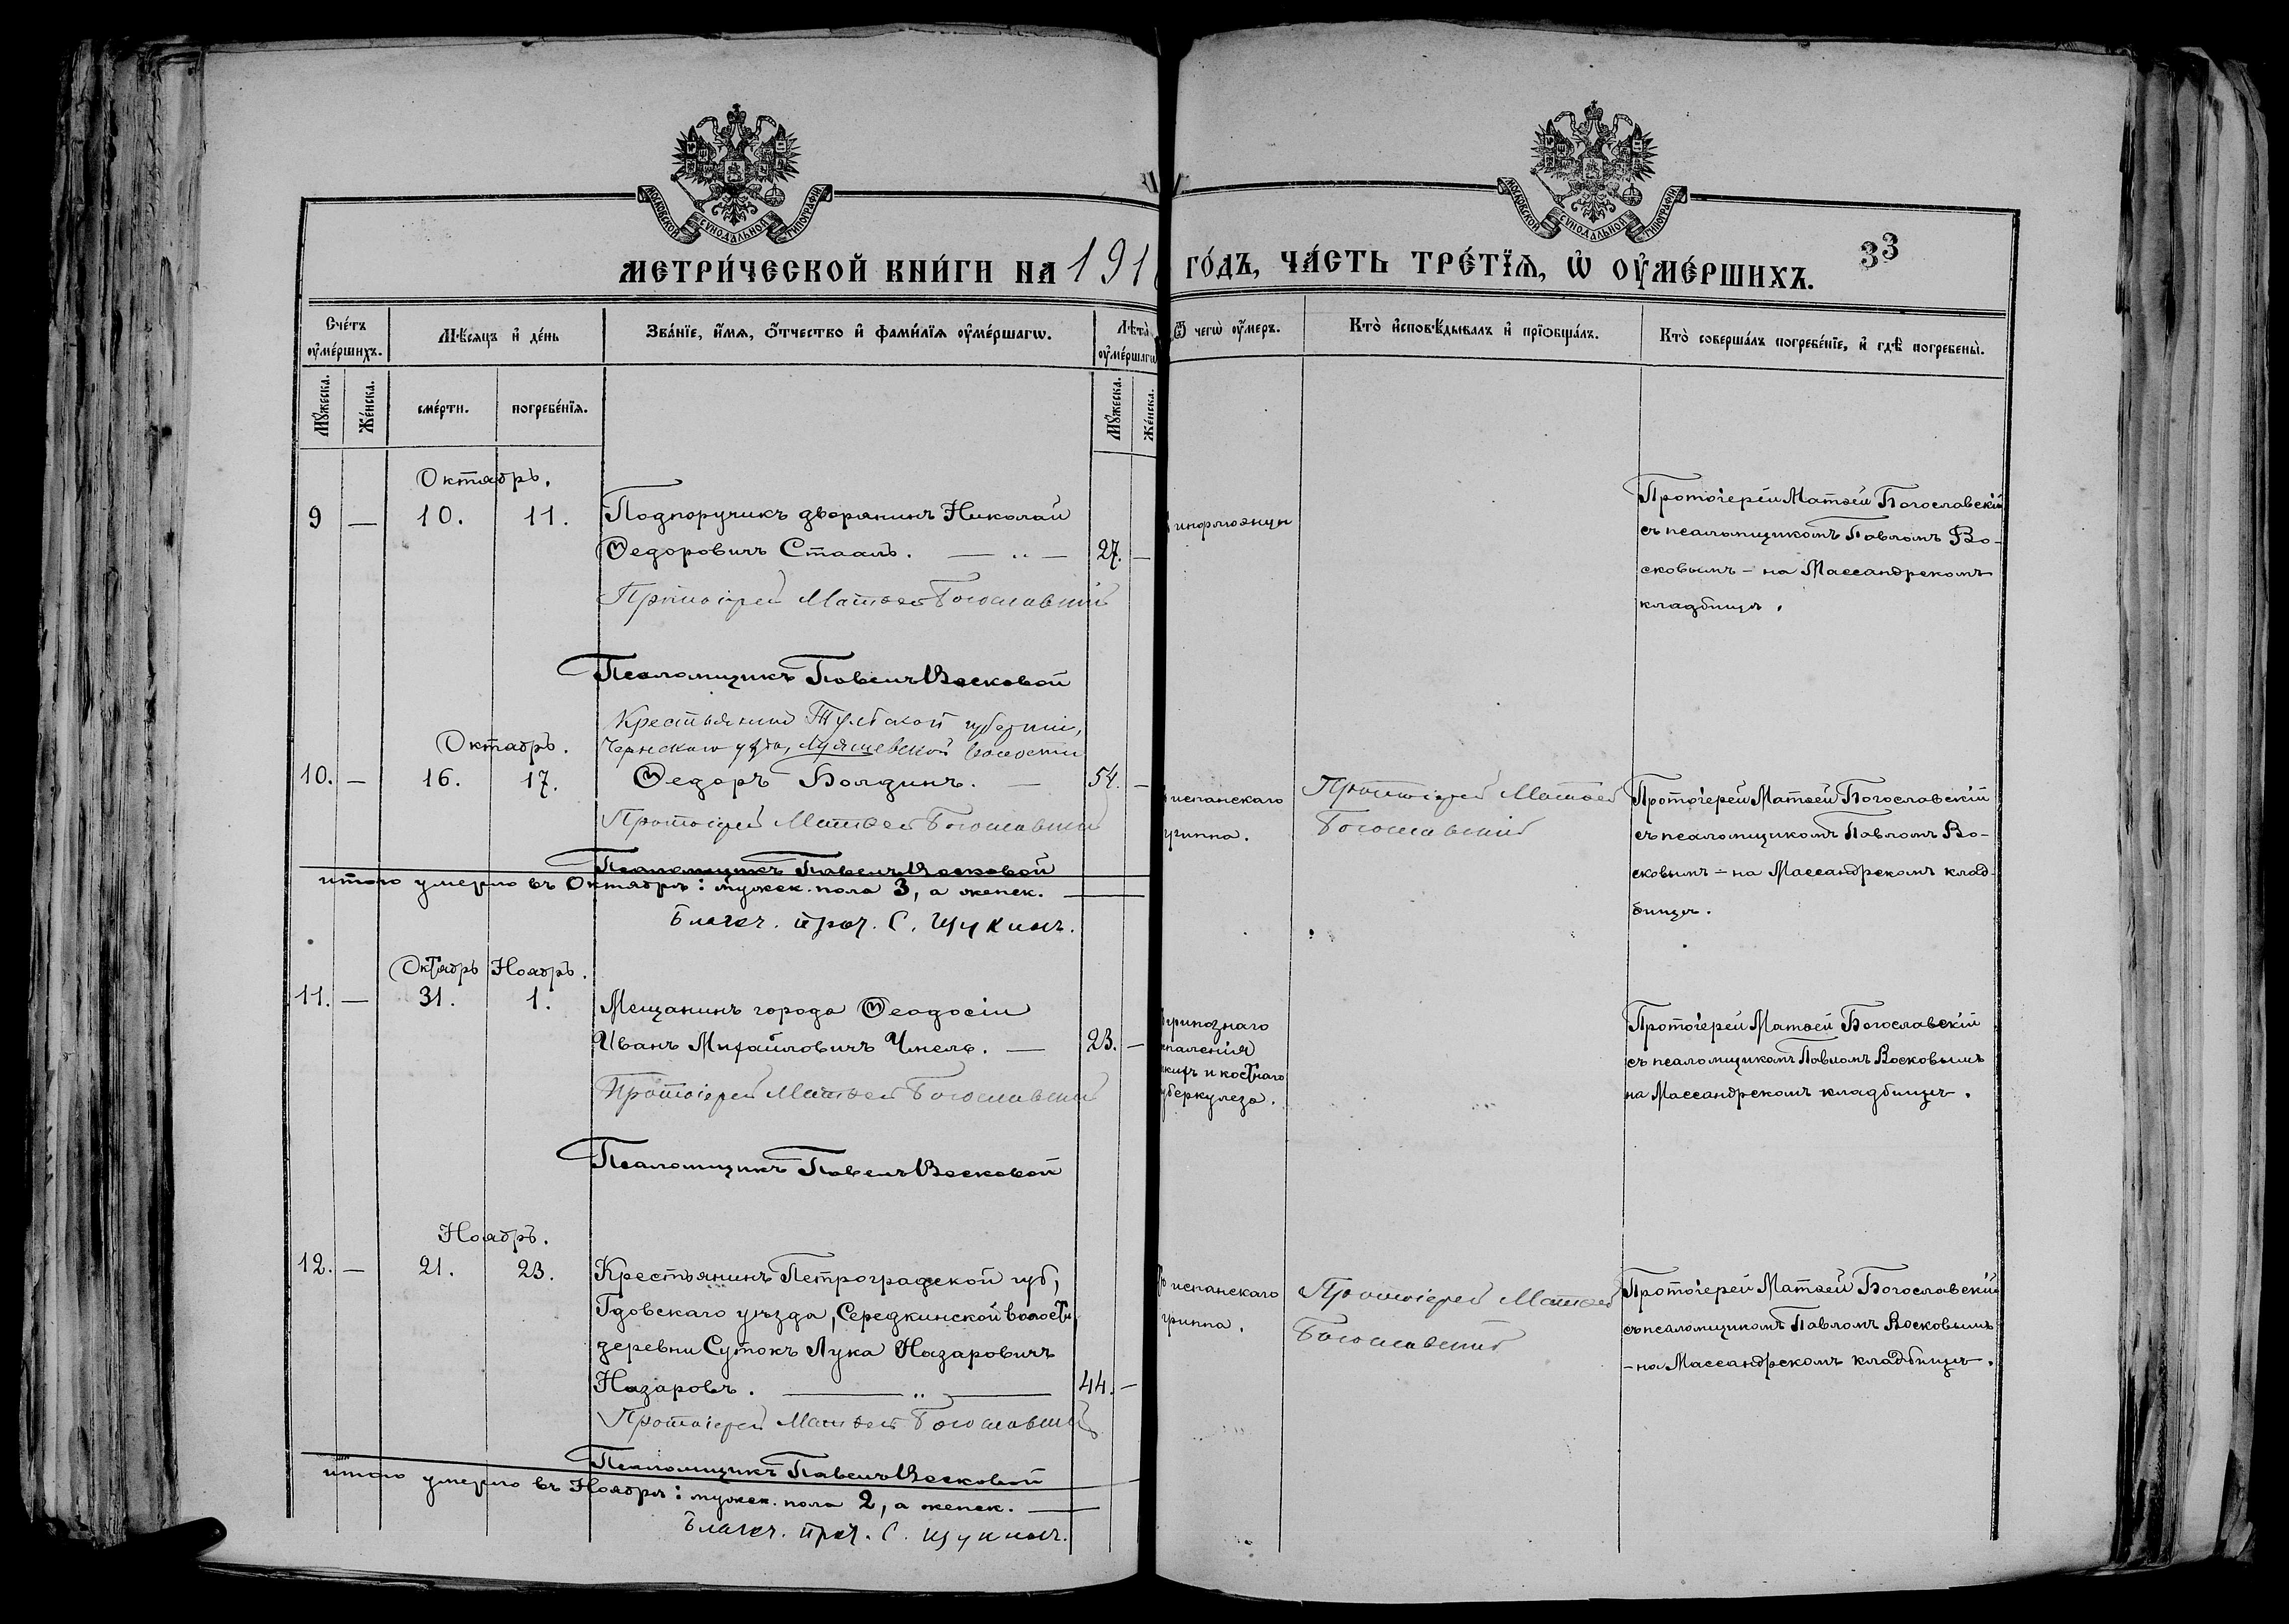 МОСКОВСКОЙ СУНОДАЛЬНОЙ ТИПОГРАФИИ
МОСКОВСКОЙ СУНОДАЛЬНОЙ ТИПОГРАФИИ
МЕТРИ́ЧЕСКОЙ КНИ́ГИ НА 191
ГО́ДЪ, ЧА́СТЬ ТРЕ́ТЇѦ, Ѡ҆ ОУ҆МЕ́РШИХЪ.
33
Сче́тъ оу҆ме́ршихъ.
Мѣ́сяцъ и҆ де́нь
Зва́нїе, и҆́мя, ѻ҆́тчество и҆ фами́лїя оу҆ме́ршагѡ.
Лѣ́та оу҆ме́ршагѡ
Ѿ чегѡ̀ оу҆́меръ.
Кто̀ и҆сповѣ́дывалъ и҆ прїѡбща́лъ.
Кто̀ соверша́лъ погребе́нїе, и҆ гдѣ̀ погребены̀.
Му́жеска.
Же́нска.
сме́рти.
погребе́нїя.
Му́жеска.
Же́нска.
Октябрь.
9 — 10. 11. Подпоручикъ дворянинъ Николай
Ѳедоровичъ Стааль. — „ — 27. —
Протоіерей Матѳей Богославскій
Псаломщикъ Павелъ Восковой
инфлюэнцы
Протоіерей Матѳей Богославскій
съ псаломщикомъ Павломъ Во-
сковымъ – на Массандрскомъ
кладбищѣ.
Крестьянинъ Тульской губерніи,
Чернскаго уѣзда, волости
Октябрь.
10. — 16. 17. Ѳедоръ Болдинъ. — 54. —
Протоіерей Матѳей Богославскій
Псаломщикъ Павелъ Восковой
испанскаго
гриппа.
Протоіерей Матѳей
Богославскій
Протоіерей Матѳей Богославскій
съ псаломщикомъ Павломъ Во-
сковымъ – на Массандрскомъ клад-
бищѣ.
итого умерло въ Октябрѣ: мужск. пола 3, а женск. —
Благоч. прот. С. Щукинъ.
Октябрь Ноябрь.
11. — 31. 1. Мещанинъ города Ѳеодосіи
Иванъ Михайловичъ Чмель. — 23. —
Протоіерей Матѳей Богославскій
Псаломщикъ Павелъ Восковой
и костнаго
туберкулеза.
Протоіерей Матѳей Богославскій
съ псаломщикомъ Павломъ Восковымъ
на Массандрскомъ кладбищѣ.
Ноябрь.
12. — 21. 23. Крестьянинъ Петроградской губ,
Гдовскаго уѣзда, Середкинской волости,
деревни Сутокъ Лука Назаровичъ
Назаровъ. — „ — 44. —
Протоіерей Матѳей Богославскій
Псаломщикъ Павелъ Восковой
испанскаго
гриппа.
Протоіерей Матѳей
Богославскій
Протоіерей Матѳей Богославскій
съ псаломщикомъ Павломъ Восковымъ
– на Массандрскомъ кладбищѣ.
итого умерло въ Ноябрѣ: мужск. пола 2, а женск. —
Благоч. прот. С. Щукинъ.